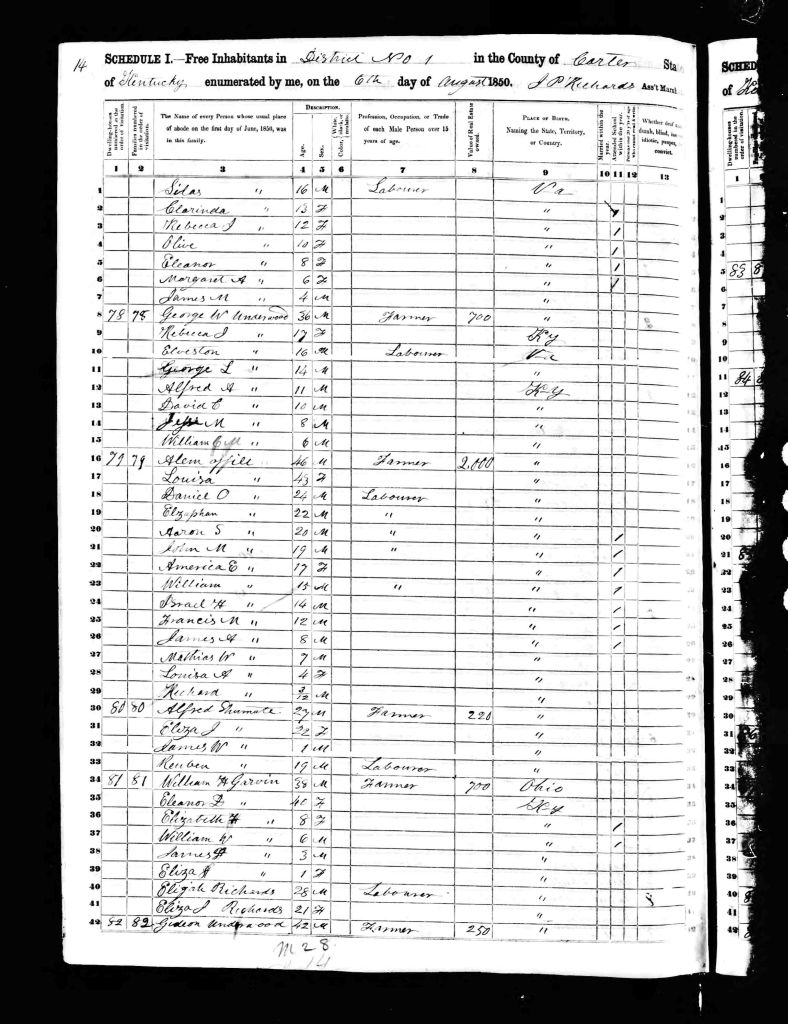 14
SCHEDULE I.—Free Inhabitants in District No 1 in the County of Carter Sta
of Kentucky enumerated by me, on the 6th day of August 1850. J P Richards Ass't Marsh
Dwelling-houses numbered in the order of visitation. Families numbered in the order of visitation. The Name of every Person whose usual place of abode on the first day of June, 1850, was in this family. DESCRIPTION. Age. Sex. Color, White, black, or mulatto. Profession, Occupation, or Trade of each Male Person over 15 years of age. Value of Real Estate owned. PLACE OF BIRTH. Naming the State, Territory, or Country. Married within the year. Attended School within the year. Whether deaf and dumb, blind, insane, idiotic, pauper, convict.
1 2 3 4 5 6 7 8 9 10 11 12 13
1 Silas " 16 M Labourer Va
2 Clarinda " 13 F " 1
3 Rebecca J " 12 F " 1
4 Olive " 10 F " 1
5 Eleanor " 8 F " 1
6 Margaret A " 6 F " 1
7 James M " 4 M "
8 78 78 George W Underwood 36 M Farmer 700 "
9 Rebecca J " 17 F Ky
10 Elveston " 16 M Labourer Va
11 George L " 14 M "
12 Alfred A " 11 M Ky
13 David C " 10 M "
14 Jesse M " 8 M "
15 William C M " 6 M "
16 79 79 46 M Farmer 2,000 "
17 Louisa " 43 F "
18 Daniel O " 24 M Labourer "
19 Elzaphan " 22 M " "
20 Aaron S " 20 M " " 1
21 John M " 19 M " " 1
22 America E " 17 F " 1
23 William " 15 M " " 1
24 Israel H " 14 M " 1
25 Francis M " 12 M " 1
26 James A " 8 M " 1
27 Mathias W " 7 M "
28 Louisa A " 4 F "
29 Richard " M "
30 80 80 Alfred Shumate 27 M Farmer 220 "
31 Eliza J " 22 F "
32 James W " 1 M "
33 Reuben " 19 M Labourer "
34 81 81 William H Garvin 38 M Farmer 700 Ohio
35 Eleanor D " 40 F Ky
36 Elizabeth H " 8 F " 1
37 William W " 6 M " 1
38 James " 3 M "
39 Eliza " 1 F "
40 Elijah Richards 28 M Labourer "
41 Eliza J Richards 21 F "
42 82 82 Gideon Underwood 42 M Farmer 250 "
M 28
14